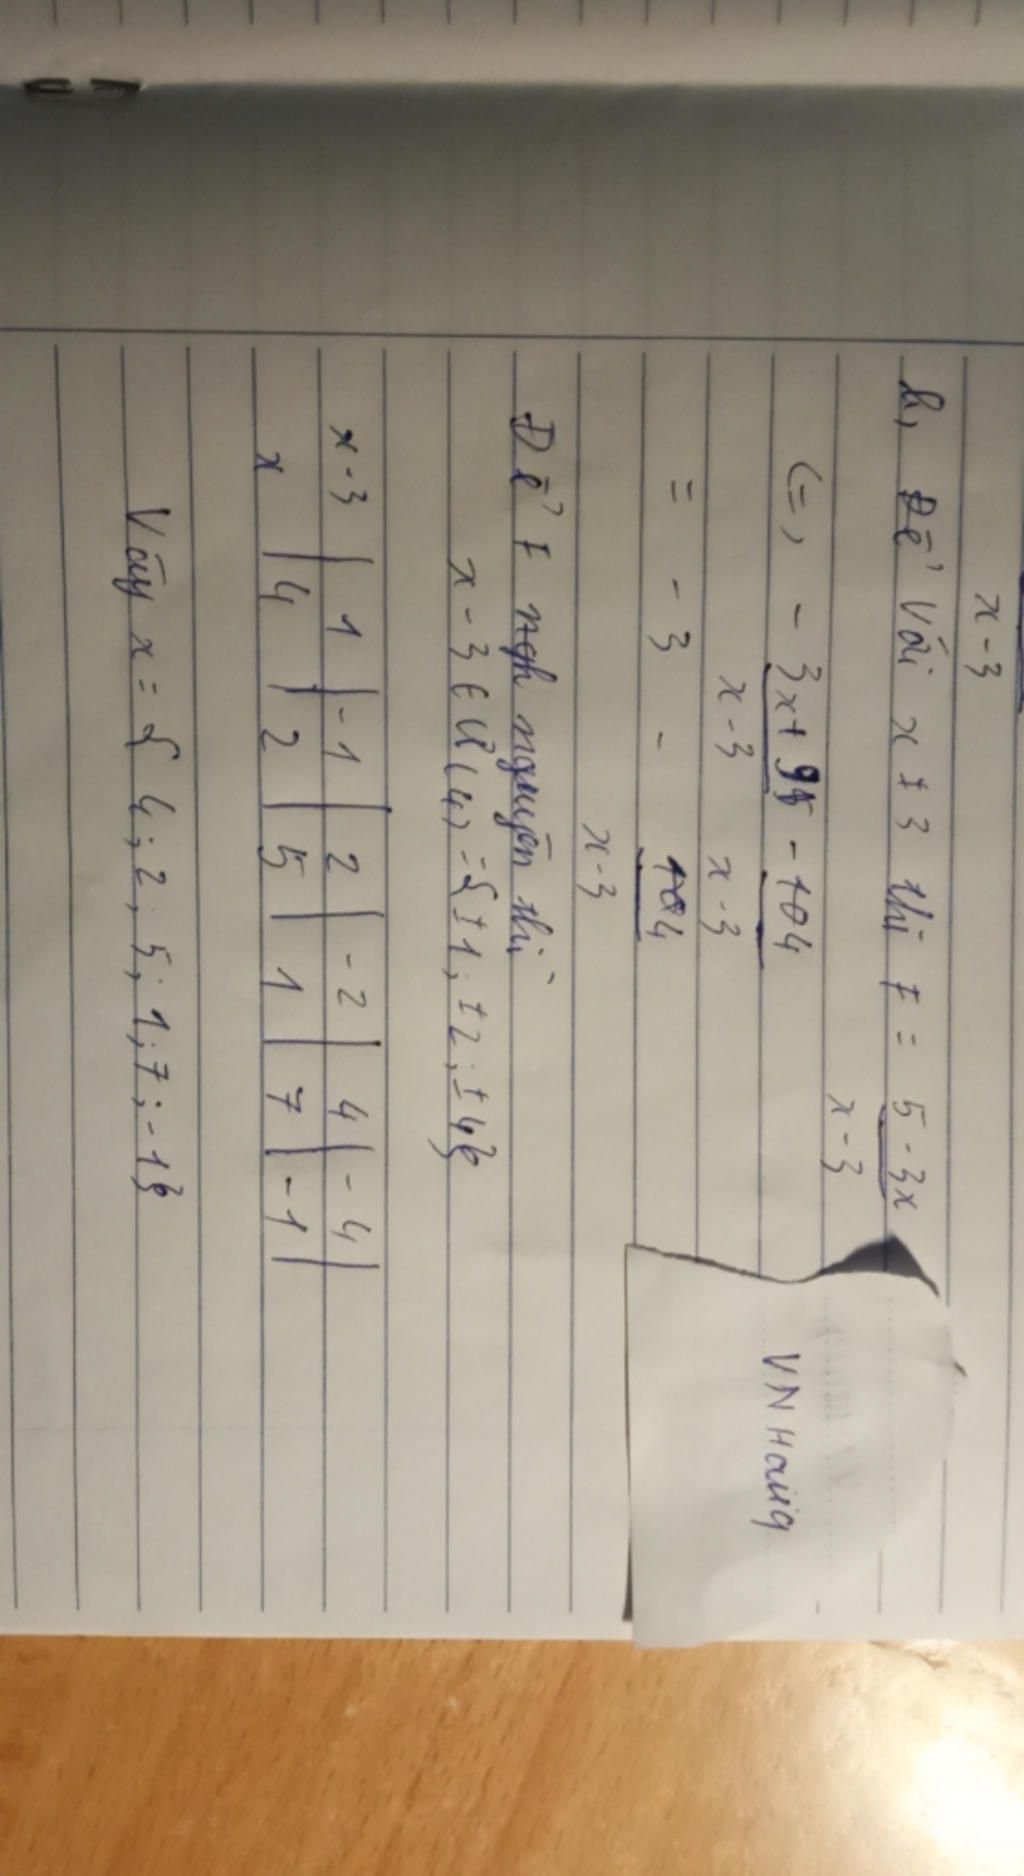 x-3
b, Để Với x ≠ 3 thì F = 5-3x
x-3
(=) -3x+9 - 4
x-3 x-3
= -3 - 4
x-3
Để F ngh nguyên thì
x-3 ∈ Ư(4) = {±1; ±2; ±4}
x-3 | 1 | -1 | 2 | -2 | 4 | -4 |
x | 4 | 2 | 5 | 1 | 7 | -1 |
Vây x = { 4; 2; 5; 1; 7; -1}
VN Hang